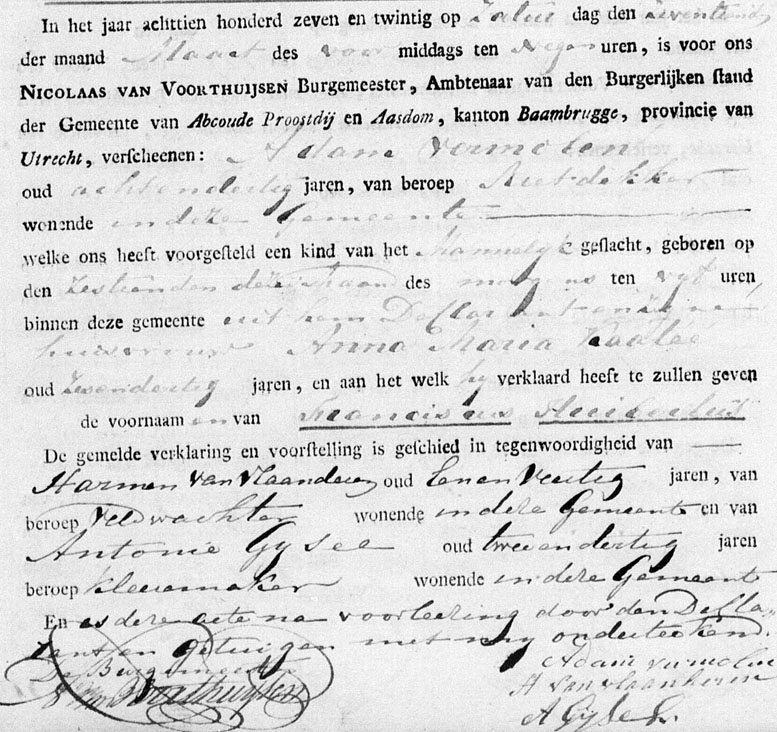 In het jaar achttien honderd zeven en twintig op Zatur dag den Zeventienden
der maand Maart des voor middags ten negen uren, is voor ons
NICOLAAS VAN VOORTHUIJSEN Burgemeester, Ambtenaar van den Burgerlijken stand
der Gemeente van Abcoude Proostdij en Aasdom, kanton Baambrugge, provincie van
Utrecht, verscheenen: Adam Vermolen
oud achtendertig jaren, van beroep Rietdekker
wonende in deze Gemeente
welke ons heeft voorgesteld een kind van het Mannelyk geslacht, geboren op
den Zestienden dezer Maand des morgens ten vyf uren
binnen deze gemeente uit hem Declarant en zijne
huisvrouw Anna Maria
oud Zevendertig jaren, en aan het welk hy verklaard heeft te zullen geven
de voornaam en van Franciscus
De gemelde verklaring en voorstelling is geschied in tegenwoordigheid van
Harmen van Vlaanderen oud Eenenveertig jaren, van
beroep Veldwachter wonende in deze Gemeente en van
Antonie Gysee oud tweendertig jaren
beroep kleermaker wonende in deze Gemeente
En is deze acte na voorleezing door den Decla-
rant en getuigen met my onderteekend.
De Burgemeester Adam Vermolen
N V Voorthuijsen H van vlaanderen
A Gysee